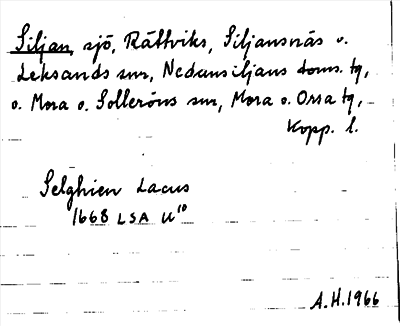 Siljan, sjö, Rättviks, Siljansnäs o.
Leksands snr, Nedansiljans doms. tg,
o. Mora o. Solleröns snr, Mora o. Orsa tg,
Kopp. l.
Selghien Lacus
1668 LSA U¹⁰
A.H. 1966